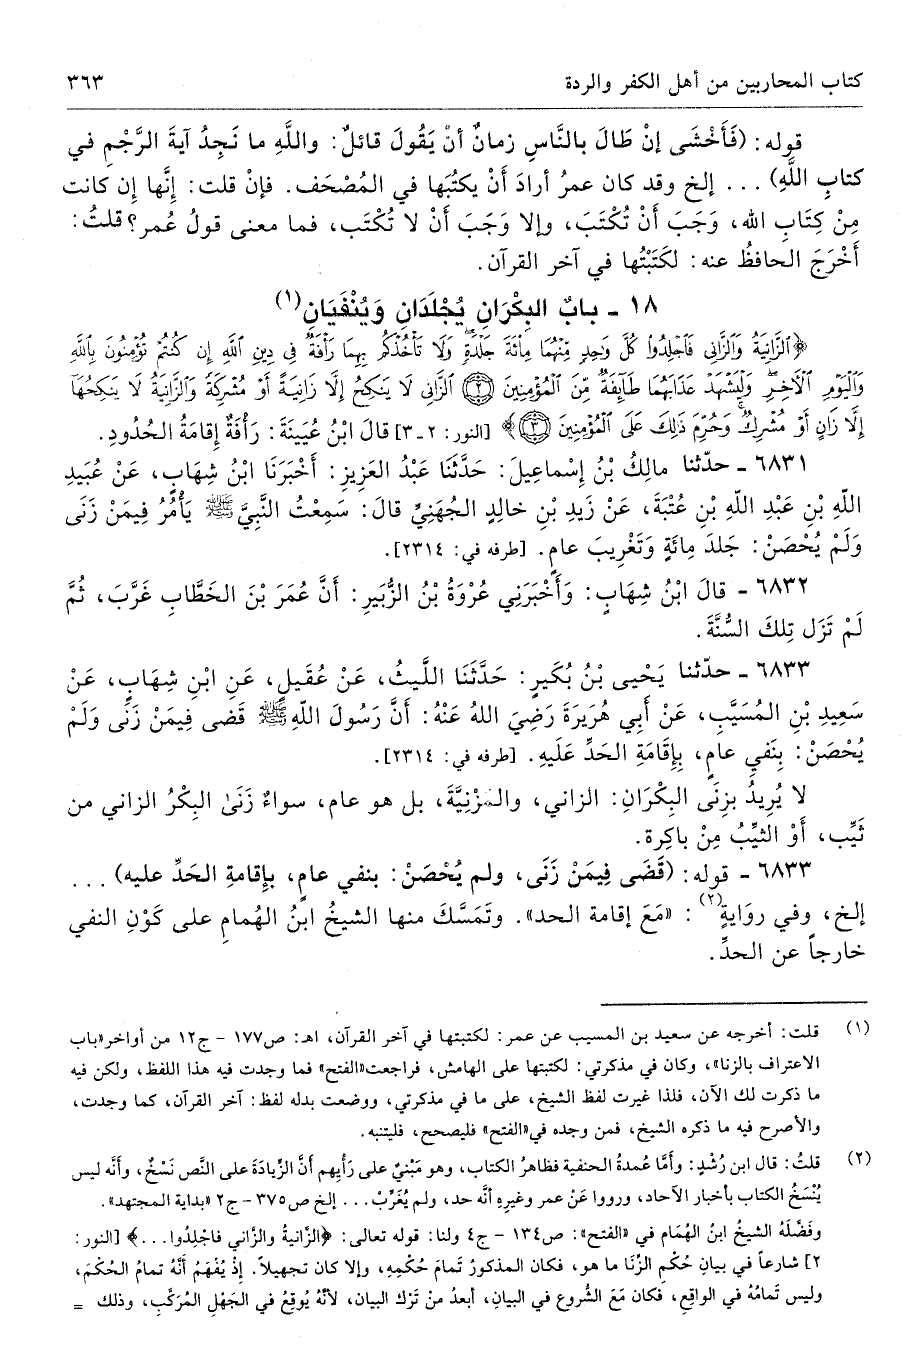 كتاب المحاربين من أهل الكفر والردة ٣٦٣
قوله: (فَأَخْشَى إنْ طَالَ بالنَّاسِ زمانٌ أنْ يَقُولَ قائلٌ: واللَّهِ ما نَجِدُ آيةَ الرَّجْمِ في
كتابِ اللَّهِ) ... إلخ وقد كان عمرُ أرادَ أنْ يكتُبَها في المُصْحَف. فإنْ قلت: إنَّها إن كانت
مِنْ كِتَابِ الله، وَجَبَ أَنْ تُكْتَبَ، وإلا وَجَبَ أَنْ لا تُكْتَب، فما معنى قولُ عُمر؟ قلتُ:
أَخْرَجَ الحافظُ عنه: لكَتَبْتُها في آخر القرآن.
١٨ - بابٌ البِكْرَانِ يُجْلَدَانِ وَيُنْفَيَانِ(١)
﴿ٱلزَّانِيَةُ وَٱلزَّانِي فَٱجْلِدُوا كُلَّ وَٰحِدٍ مِّنْهُمَا مِاْئَةَ جَلْدَةٍ وَلَا تَأْخُذْكُم بِهِمَا رَأْفَةٌ فِي دِينِ ٱللَّهِ إِن كُنتُمْ تُؤْمِنُونَ بِٱللَّهِ
وَٱلْيَوْمِ ٱلْآخِرِ وَلْيَشْهَدْ عَذَابَهُمَا طَآئِفَةٌ مِّنَ ٱلْمُؤْمِنِينَ ٢ ٱلزَّانِي لَا يَنكِحُ إِلَّا زَانِيَةً أَوْ مُشْرِكَةً وَٱلزَّانِيَةُ لَا يَنكِحُهَا
إِلَّا زَانٍ أَوْ مُشْرِكٌ وَحُرِّمَ ذَٰلِكَ عَلَى ٱلْمُؤْمِنِينَ ٣﴾ [النور: ٢ ـ ٣] قالَ ابْنُ عُيَينَةَ: رَأْفَةٌ إِقامَةُ الحُدُودِ.
٦٨٣١ ـ حدّثنا مالِكُ بْنُ إِسْماعِيلَ: حَدَّثَنَا عَبْدُ العَزِيزِ: أَخْبَرَنَا ابْنُ شِهَابٍ، عَنْ عُبَيدِ
اللَّهِ بْنِ عَبْدِ اللَّهِ بْنِ عُتْبَةَ، عَنْ زَيدِ بْنِ خالِدٍ الجُهَنِيِّ قالَ: سَمِعْتُ النَّبِيَّ ﷺ يَأْمُرُ فِيمَنْ زَنَى
وَلَمْ يُحْصَنْ: جَلدَ مِائَةٍ وَتَغْرِيبَ عامٍ. [طرفه في: ٢٣١٤].
٦٨٣٢ ـ قالَ ابْنُ شِهَابٍ: وَأَخْبَرَنِي عُرْوَةُ بْنُ الزُّبَيرِ: أَنَّ عُمَرَ بْنَ الخَطَّابِ غَرَّبَ، ثُمَّ
لَمْ تَزَل تِلكَ السُّنَّةَ.
٦٨٣٣ ـ حدّثنا يَحْيى بْنُ بُكَيرٍ: حَدَّثَنَا اللَّيثُ، عَنْ عُقَيلٍ، عَنِ ابْنِ شِهَابٍ، عَنْ
سَعِيدِ بْنِ المُسَيَّبِ، عَنْ أَبِي هُرَيرَةَ رَضِيَ اللهُ عَنْهُ: أَنَّ رَسُولَ اللَّهِ ﷺ قَضى فِيمَنْ زَنَى وَلَمْ
يُحْصَنْ: بِنَفيِ عامٍ، بِإِقَامَةِ الحَدِّ عَلَيهِ. [طرفه في: ٢٣١٤].
لا يُرِيدُ بزِنَى البِكْرَانِ: الزاني، والمَزْنِيَّةَ، بل هو عام، سواءٌ زَنَىٰ البِكْرُ الزاني من
ثَيِّب، أَوْ الثيِّبُ مِنْ باكِرة.
٦٨٣٣ ـ قوله: (قَضَى فِيمَنْ زَنَى، ولم يُحْصَنْ: بنفي عامٍ، بإقامةِ الحَدِّ عليه) ...
إلخ، وفي روايةٍ(٢): «مَعَ إقامة الحد». وتَمَسَّكَ منها الشيخُ ابنُ الهُمامِ على كَوْنِ النفي
خارجاً عن الحدِّ.
(١) قلت: أخرجه عن سعيد بن المسيب عن عمر: لكتبتها في آخر القرآن، اهـ: ص١٧٧ - ج١٢ من أواخر«باب
الاعتراف بالزنا»، وكان في مذكرتي: لكتبتها على الهامش، فراجعت«الفتح» فما وجدت فيه هذا اللفظ، ولكن فيه
ما ذكرت لك الآن، فلذا غيرت لفظ الشيخ، على ما في مذكرتي، ووضعت بدله لفظ: آخر القرآن، كما وجدت،
والأصرح فيه ما ذكره الشيخ، فمن وجده في«الفتح» فليصحح، فليتنبه.
(٢) قلتُ: قال ابن رُشْدٍ: وأمَّا عُمدةُ الحنفية فظاهرُ الكتاب، وهو مَبْنيٌ على رَأْيِهم أنَّ الزِّيادَةَ على النَّص نَسْخٌ، وأنَّه ليس
يُنْسَخُ الكتاب بأخبار الآحاد، ورووا عَنْ عمر وغيرِهِ أنَّه حد، ولم يُغَرِّبْ... إلخ ص٣٧٥ - ج٢ «بداية المجتهد».
وفَصَّلَهُ الشيخُ ابنُ الهُمَام في «الفتح»: ص١٣٤ - ج٤ ولنا: قوله تعالى: ﴿الزَّانيةُ والزَّاني فاجْلِدُوا...﴾ [النور:
٢] شارعاً في بيانِ حُكْم الزِّنَا ما هو، فكان المذكورُ تَمامَ حُكْمِهِ، وإلا كان تجهيلاً. إذْ يُفْهَمُ أنَّهُ تمامُ الحُكْمَ،
وليس تَمامُهُ في الواقِع، فكان مَعَ الشُّروع في البيان، أبعدُ منْ تَرْك البيان، لأنَّهُ يُوقِعُ في الجَهْلِ المُرَكَّبِ، وذلك =